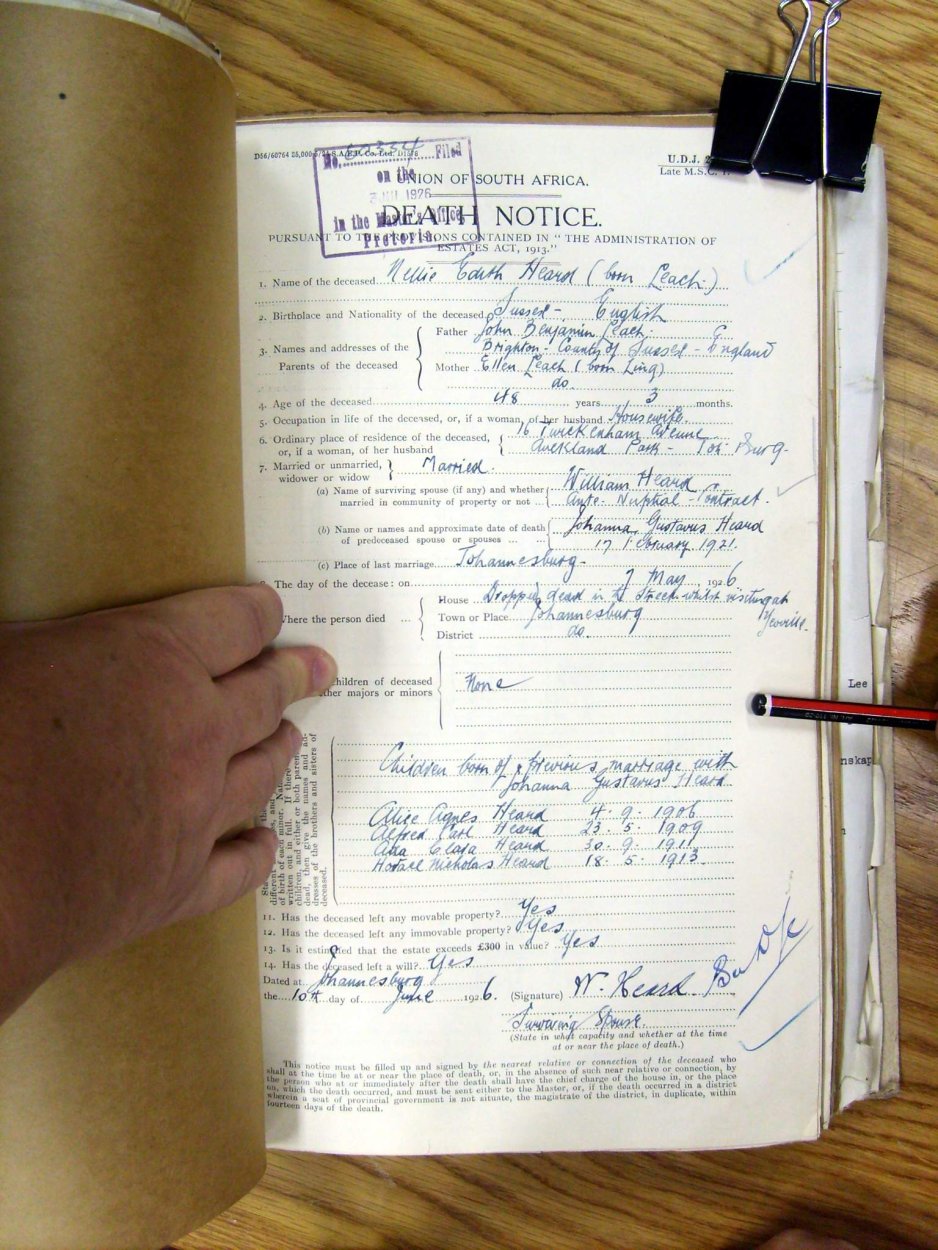 D56/60764 25,000
U.D.J.
Late M.S.C.
No. Filed
on the
1926
in the Master's Office,
Pretoria.
UNION OF SOUTH AFRICA.
DEATH NOTICE.
PURSUANT TO THE PROVISIONS CONTAINED IN "THE ADMINISTRATION OF
ESTATES ACT, 1913."
1. Name of the deceased Nellie Edith Heard (born Leach)
2. Birthplace and Nationality of the deceased Sussex - English
3. Names and addresses of the Parents of the deceased
Father John Benjamin Leach.
Brighton - County of Sussex - England
Mother Ellen Leach (born Ling)
do.
4. Age of the deceased 48 years 3 months.
5. Occupation in life of the deceased, or, if a woman, of her husband Housewife.
6. Ordinary place of residence of the deceased, 16 Twickenham Avenue
or, if a woman, of her husband Auckland Park - Joh: Burg.
7. Married or unmarried, widower or widow Married.
(a) Name of surviving spouse (if any) and whether William Heard
married in community of property or not Ante-Nuptial-Contract.
(b) Name or names and approximate date of death Johanna Gustavus Heard
of predeceased spouse or spouses 17 February 1921.
(c) Place of last marriage Johannesburg.
The day of the decease: on 7 May 1926
Where the person died
House Dropped dead in Street whilst visiting at
Town or Place Johannesburg Yeoville.
District do.
children of deceased
other majors or minors None
Children born of previous marriage with
Johanna Gustavus Heard.
Alice Agnes Heard 4. 9. 1906
Alfred Carl Heard 23. 5. 1909
Ada Clara Heard 30. 9. 1911
Horace Nicholas Heard 18. 5. 1913.
of birth of each minor.
written out in full. If there
children, and either or both parents
dead, then give the names and ad-
dresses of the brothers and sisters of
deceased.
11. Has the deceased left any movable property? Yes
12. Has the deceased left any immovable property? Yes
13. Is it estimated that the estate exceeds £300 in value? Yes
14. Has the deceased left a will? Yes
Dated at Johannesburg
the 10th day of June 1926. (Signature) W. Heard
Surviving Spouse.
(State in what capacity and whether at the time
at or near the place of death.)
This notice must be filled up and signed by the nearest relative or connection of the deceased who
shall at the time be at or near the place of death, or, in the absence of such near relative or connection, by
the person who at or immediately after the death shall have the chief charge of the house in, or the place
on, which the death occurred, and must be sent either to the Master, or, if the death occurred in a district
wherein a seat of provincial government is not situate, the magistrate of the district, in duplicate, within
fourteen days of the death.
Lee
nskap